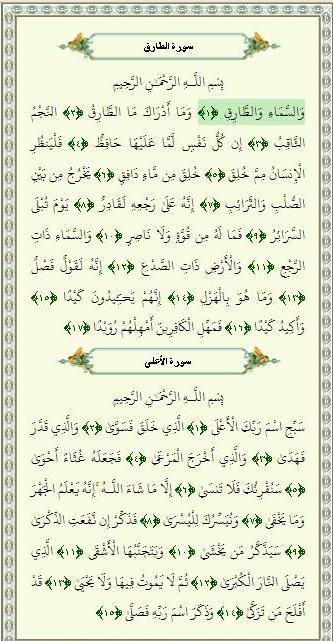 سورة الطارق
بِسْمِ اللَّـهِ الرَّحْمَـٰنِ الرَّحِيمِ
وَالسَّمَاءِ وَالطَّارِقِ ﴿١﴾ وَمَا أَدْرَاكَ مَا الطَّارِقُ ﴿٢﴾ النَّجْمُ
الثَّاقِبُ ﴿٣﴾ إِن كُلُّ نَفْسٍ لَّمَّا عَلَيْهَا حَافِظٌ ﴿٤﴾ فَلْيَنظُرِ
الْإِنسَانُ مِمَّ خُلِقَ ﴿٥﴾ خُلِقَ مِن مَّاءٍ دَافِقٍ ﴿٦﴾ يَخْرُجُ مِن بَيْنِ
الصُّلْبِ وَالتَّرَائِبِ ﴿٧﴾ إِنَّهُ عَلَىٰ رَجْعِهِ لَقَادِرٌ ﴿٨﴾ يَوْمَ تُبْلَى
السَّرَائِرُ ﴿٩﴾ فَمَا لَهُ مِن قُوَّةٍ وَلَا نَاصِرٍ ﴿١٠﴾ وَالسَّمَاءِ ذَاتِ
الرَّجْعِ ﴿١١﴾ وَالْأَرْضِ ذَاتِ الصَّدْعِ ﴿١٢﴾ إِنَّهُ لَقَوْلٌ فَصْلٌ
﴿١٣﴾ وَمَا هُوَ بِالْهَزْلِ ﴿١٤﴾ إِنَّهُمْ يَكِيدُونَ كَيْدًا ﴿١٥﴾
وَأَكِيدُ كَيْدًا ﴿١٦﴾ فَمَهِّلِ الْكَافِرِينَ أَمْهِلْهُمْ رُوَيْدًا ﴿١٧﴾
سورة الأعلى
بِسْمِ اللَّـهِ الرَّحْمَـٰنِ الرَّحِيمِ
سَبِّحِ اسْمَ رَبِّكَ الْأَعْلَى ﴿١﴾ الَّذِي خَلَقَ فَسَوَّىٰ ﴿٢﴾ وَالَّذِي قَدَّرَ
فَهَدَىٰ ﴿٣﴾ وَالَّذِي أَخْرَجَ الْمَرْعَىٰ ﴿٤﴾ فَجَعَلَهُ غُثَاءً أَحْوَىٰ
﴿٥﴾ سَنُقْرِئُكَ فَلَا تَنسَىٰ ﴿٦﴾ إِلَّا مَا شَاءَ اللَّـهُ ۚ إِنَّهُ يَعْلَمُ الْجَهْرَ
وَمَا يَخْفَىٰ ﴿٧﴾ وَنُيَسِّرُكَ لِلْيُسْرَىٰ ﴿٨﴾ فَذَكِّرْ إِن نَّفَعَتِ الذِّكْرَىٰ
﴿٩﴾ سَيَذَّكَّرُ مَن يَخْشَىٰ ﴿١٠﴾ وَيَتَجَنَّبُهَا الْأَشْقَى ﴿١١﴾ الَّذِي
يَصْلَى النَّارَ الْكُبْرَىٰ ﴿١٢﴾ ثُمَّ لَا يَمُوتُ فِيهَا وَلَا يَحْيَىٰ ﴿١٣﴾ قَدْ
أَفْلَحَ مَن تَزَكَّىٰ ﴿١٤﴾ وَذَكَرَ اسْمَ رَبِّهِ فَصَلَّىٰ ﴿١٥﴾